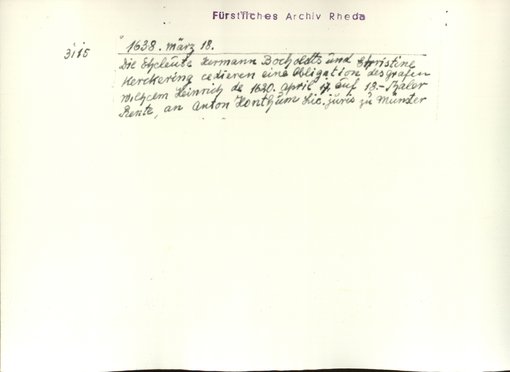 Fürstliches Archiv Rheda
3118
1638. März 18.
Die Eheleute Hermann Bocholdts und Christine
Kerckering cedieren eine Obligation des Grafen
Wilhelm Heinrich de 1620. April auf 13.- Thaler
Rente, an Anton Honthum Lic. juris zu Münster